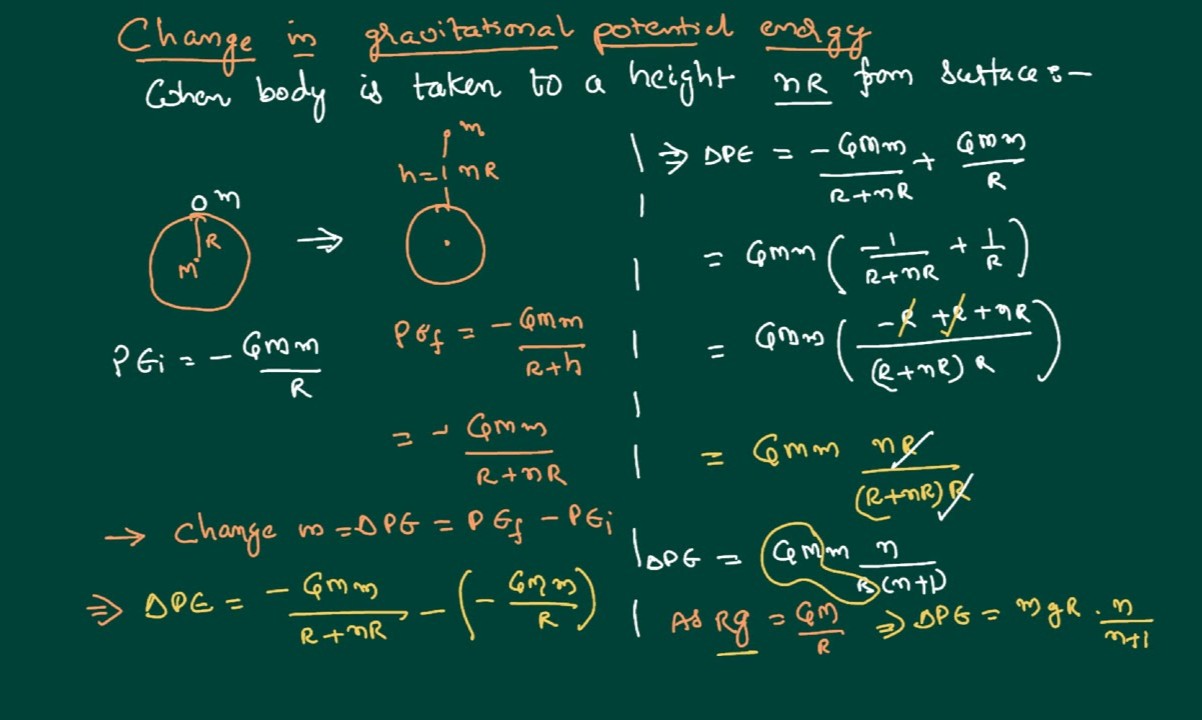 Change in gravitational potential energy
When body is taken to a height nR from surface :-
m
R
M
→
m
h = nR
PEi = - GMm / R
PEf = - GMm / R+h
= - GMm / R+nR
→ Change in = ΔPE = PEf - PEi
⇒ ΔPE = - GMm / R+nR - (- GMm / R)
⇒ ΔPE = - GMm / R+nR + GMm / R
= GMm ( -1 / R+nR + 1 / R )
= GMm ( -R + R + nR / (R+nR) R )
= GMm nR / (R+nR) R
ΔPE = GMm n / R (n+1)
As Rg = GM / R ⇒ ΔPE = mgR . n / n+1